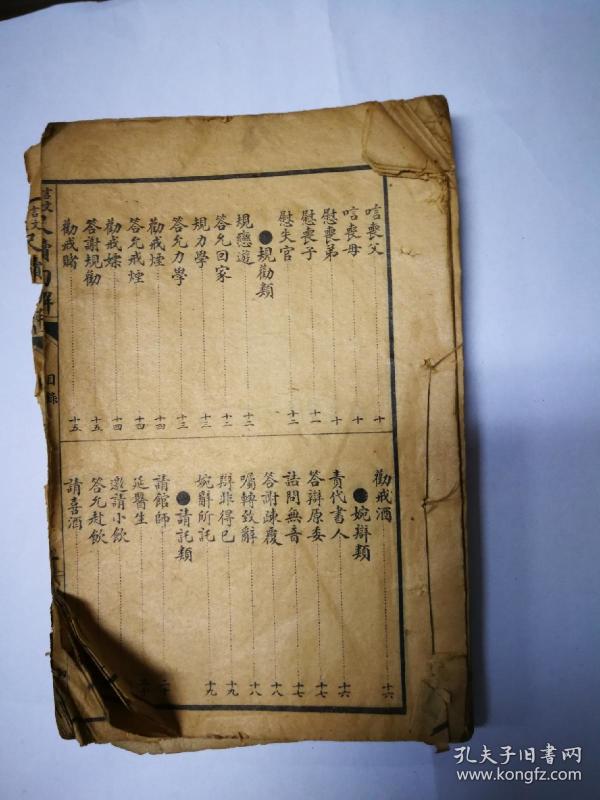 唁喪父 十
唁喪母 十
慰喪弟 十
慰喪子 十一
慰失官 十二
●規勸類
規戀遊 十二
答允回家 十二
規力學 十三
答允力學 十三
勸戒煙 十四
答允戒煙 十四
勸戒嫖 十四
答謝規勸 十五
勸戒賭 十五
勸戒酒 十六
●婉辯類
責代書人 十六
答辯原委 十七
詰問無音 十七
答謝疎覆 十八
囑轉致辭 十八
辯非得已 十九
婉辭所託 十九
●請託類
請館師 二十
延醫生
邀請小飲
答允赴飲
請喜酒
言文
尺牘句解
目錄
孔夫子旧书网
www.kongfz.com